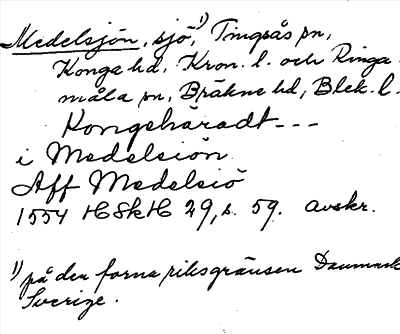 Medelsjön, sjö,¹⁾ Tingsås sn,
Konga hd, Kron. l. och Ringa-
måla sn, Bräkne hd, Blek. l.
Kongehäradt ---
i Medelsiön
Aff Medelsiö
1554 HSkH 29, s. 59. avskr.
¹⁾ på den forna riksgränsen Danmark
Sverige.